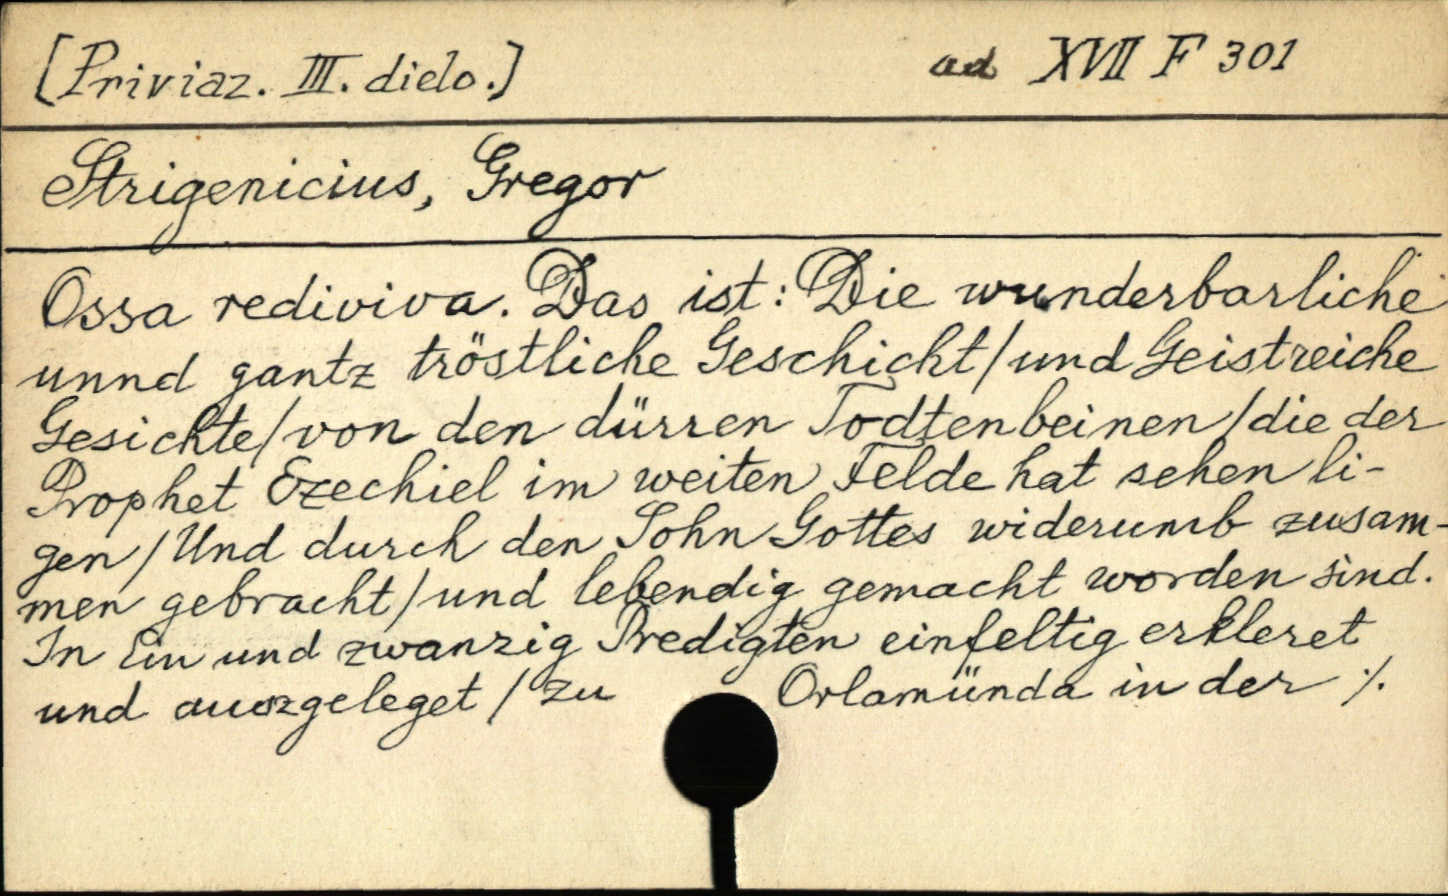 [Priviaz. III. dielo.] ad XVII F 301
Strigenicius, Gregor
Ossa rediviva. Das ist: Die wunderbarliche
unnd gantz tröstliche Geschicht/und Geistreiche
Gesichte/von den dürren Todtenbeinen/die der
Prophet Ezechiel im weiten Felde hat sehen li-
gen/Und durch den Sohn Gottes widerumb zusam-
men gebracht/und lebendig gemacht worden sind.
In Ein und zwanzig Predigten einfeltig erkleret
und auszgeleget/zu Orlamünda in der ·/.